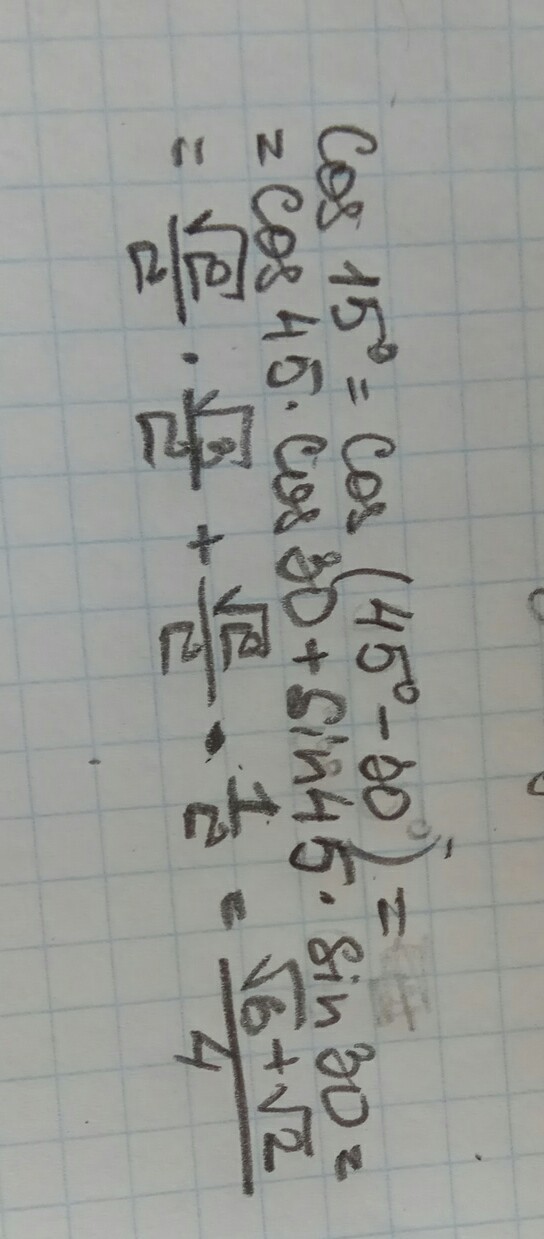 cos 15° = cos (45° - 30°) =
= cos 45 · cos 30 + sin 45 · sin 30 =
= √2/2 · √3/2 + √2/2 · 1/2 = (√6 + √2)/4